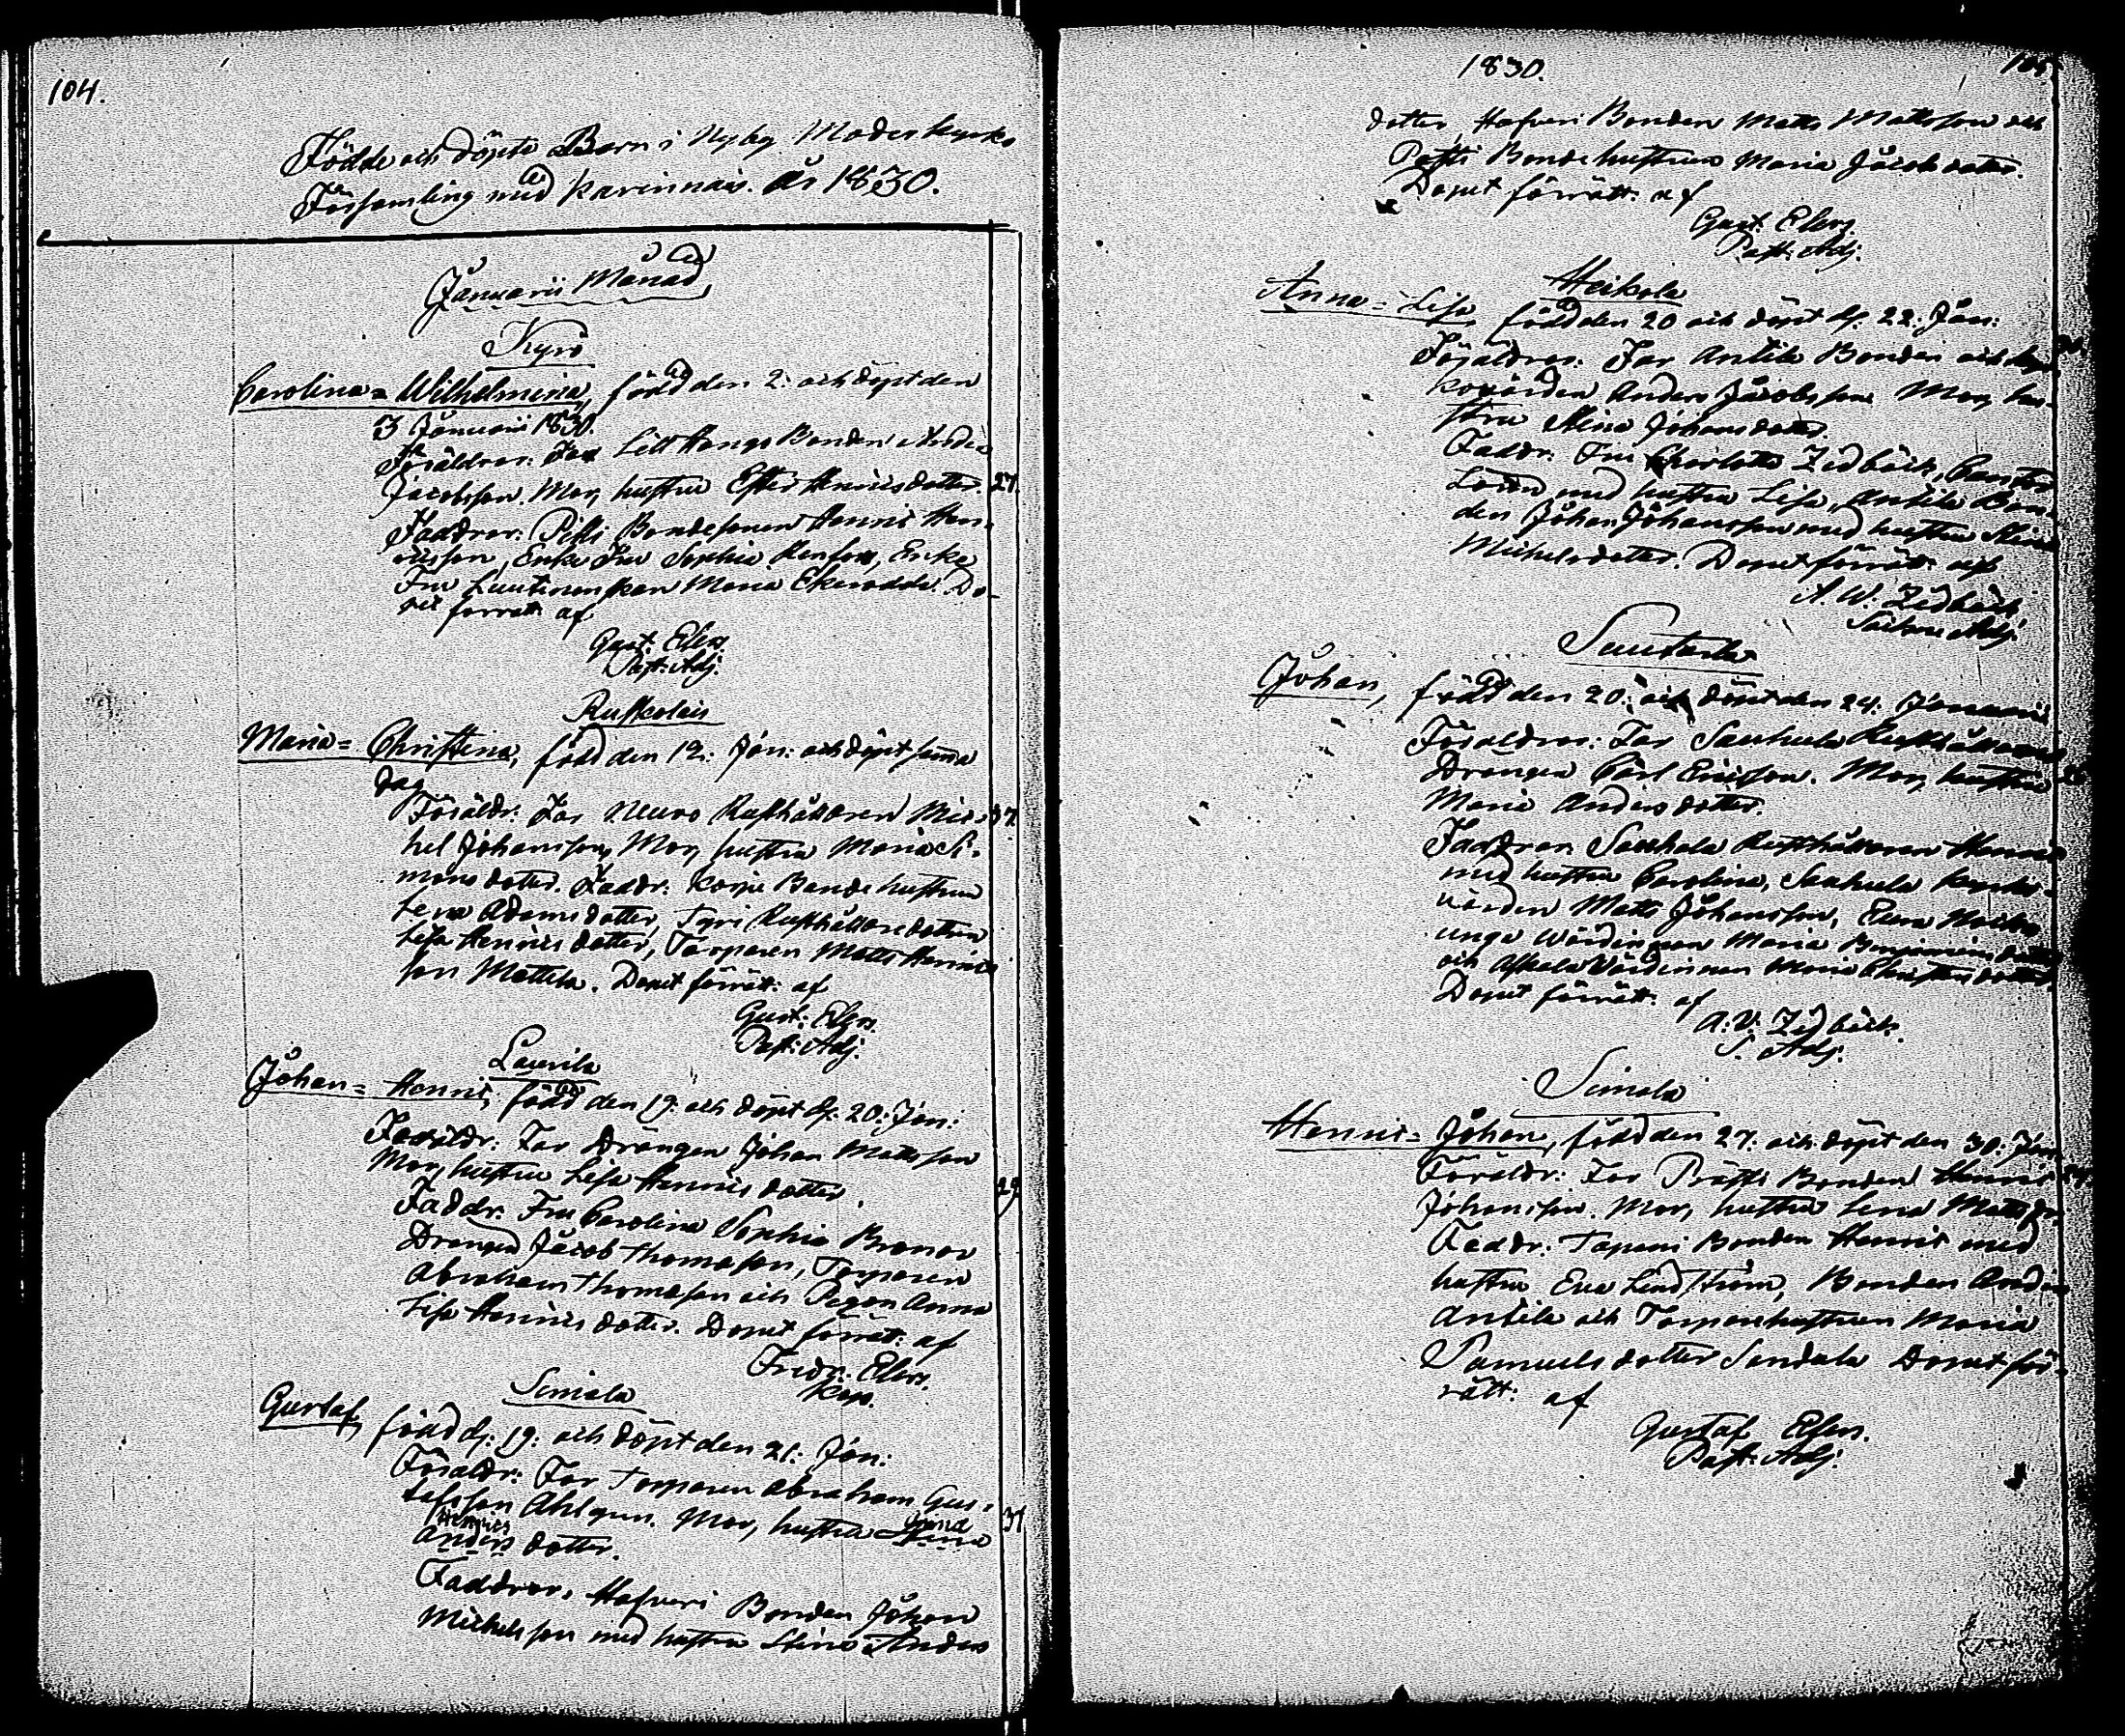 104.
Födde och döpte Barn i Nyby Moderkyrko
Församling med Karinnais. År 1830.
Januarii Månad
Kyrö
Carolina=Wilhelmina, född den 2: och döpt den
3 Januari 1830.
Föräldrar: Far Lill Hongo Bonden Anders
Jacobsson. Mor, hustru Ester Henricsdotter. 27.
Faddrar: Pitti Bondesonen Henric Hen-
ricsson, Enke Fru Sophia, Enke
Fru Lieutenenskan Maria Do-
pet förrätt: af
Gust: Elers.
Past: Adj:
Ruskolais
Maria=Christina, född den 12: Jan: och döpt samma
dag
Föräldr: Far Neuvo Rusthållaren Mic- 37.
hel Johansson, Mor, hustru Maria Si-
monsdotter. Faddr: Korpi Bonde hustrun
Lena Adamsdotter, Tyri Rusthållaredottren
Lisa Henricsdotter, Torparen Matts Henrics
son Mattila. Dopet förrätt: af
Gust: Elers.
Past: Adj:
Laurila
Johan=Henric, född den 19: och döpt d: 20: Jan:
Föräldr: Far Drängen Johan Mattsson
Mor, hustru Lisa Henricsdotter. 29
Faddr: Fru Carolina Sophia
Drängen Jacob Thomasson, Torparen
Abraham Thomasson och Pigan Anna
Lisa Henricsdotter. Dopet förrätt: af
Fredr: Elers.
Kap.
Simola
Gustaf, född d: 19: och döpt den 21: Jan:
Föräldr: Far Torparen Abraham Gus-
tafsson Ahlgren. Mor, hustru Stina 31
Henrics
Anders dotter.
Faddrar, Hafveri Bonden Johan
Michelsson med hustru Stina Anders
1830. 105
dotter, Hafveri Bonden Matts Mattsson och
Patti Bondehustrun Maria Jacobsdotter.
Dopet förrätt: af
Gust: Elers.
Past: Adj:
Heikola
Anna=Lisa, född den 20 och döpt d: 22: Jan:
Föräldrar: Far Antila Bonden och kyr-
kovärden Anders Jacobsson. Mor, hu-
stru Stina Johansdotter.
Faddr: Fru Charlotta Zidbäck,
med hustru Lisa, Antila Bon-
den Johan Johansson med hustru Stina
Michelsdotter. Dopet förrätt: af
A. W. Zidbäck
Adj:
Johan, född den 20: och döpt den 24: Januarii
Föräldrar: Far Sauhula Rusthållare
Drängen Carl Ericsson. Mor, hustru
Maria Andersdotter.
Faddrar: Sauhula Rusthållaren Henric
med hustru Carolina, Sauhula kyrko-
värden Matts Johansson,
unga Wärdinnan Maria
och Wärdinnan Maria Christersdotter,
Dopet förrätt: af
A: W: Zidbäck.
S. Adj:
Simola
Henric=Johan, född den 27. och döpt den 30: Jan
Föräldr: Far Prästi Bonden Henric
Johansson. Mor, hustru Lena Mattsdr
Faddr: Tapani Bonden Henric med
hustru Eva Lindström, Bonden Anders
Antila och Torparehustrun Maria
Samuelsdotter Sandala Dopet för-
rätt: af
Gustaf Elers.
Past: Adj: